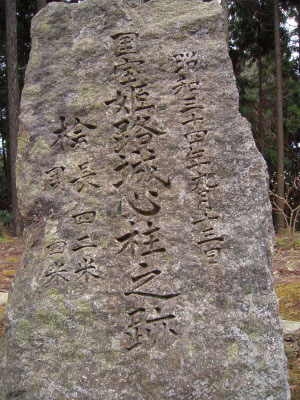 昭和三十四年九月十三日
国宝姫路城心柱之跡
桧
長 四二米
周 四米